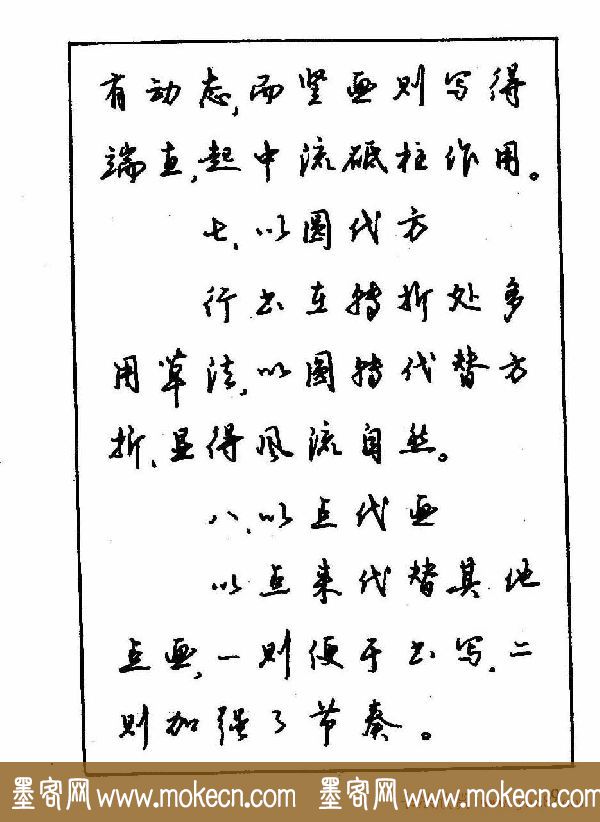 有动态,而竖画则写得
端直,起中流砥柱作用。
七、以圆代方
行书在转折处多
用草法,以圆转代替方
折,显得风流自然。
八、以点代画
以点来代替其他
点画,一则便于书写,二
则加强了节奏。
墨客网 www.mokecn.com 墨客网 www.mokecn.com